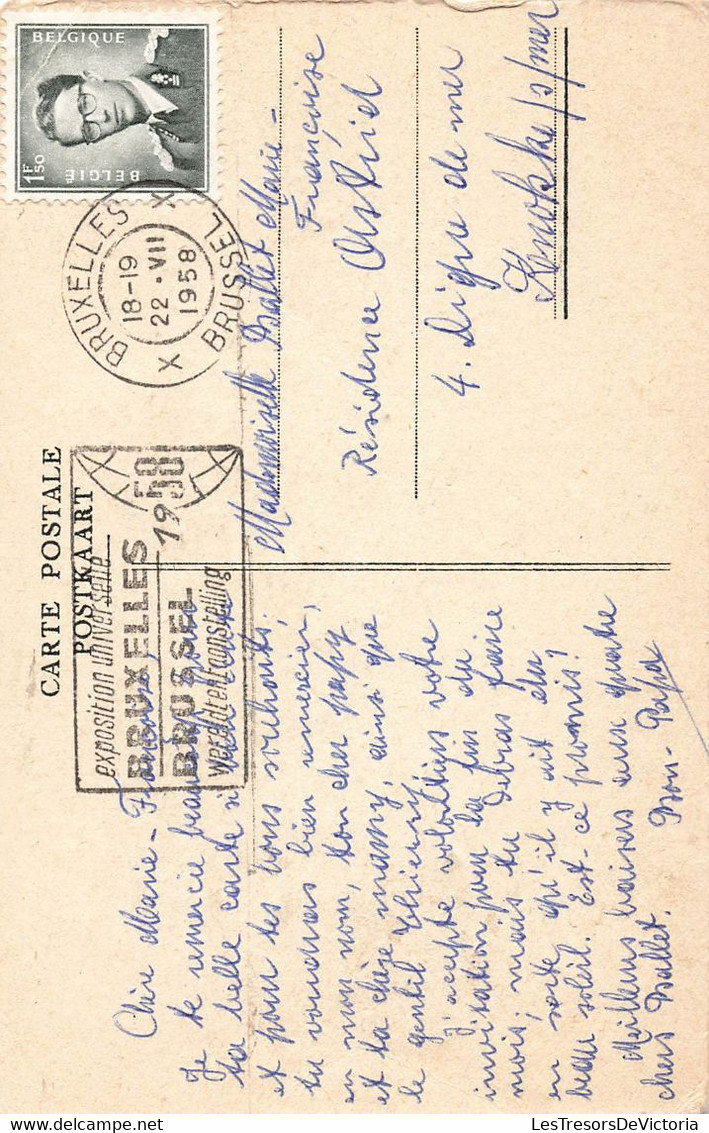 BELGIQUE
BELGIË
1F50
BRUXELLES
18-19
22 · VII
1958
BRUSSEL
X X
CARTE POSTALE
POSTKAART
exposition universelle
BRUXELLES
BRUSSEL
wereldtentoonstelling
1958
Mademoiselle Ballet Marie-
Françoise
Résidence Astrid
4. Digue de mer
Knokke s/mer
Chère Marie-Françoise,
Je te remercie beaucoup pour
ta belle carte si
et pour tes bons souhaits.
tu voudras bien remercier,
en mon nom, ton cher papy
et ta chère mamy, ainsi que
le gentil Thierry.
J'accepte volontiers votre
invitation pour la fin du
mois; mais tu devras faire
en sorte qu'il y ait du
beau soleil. Est-ce promis?
Meilleurs baisers aux quatre
chers Ballet. Bon-Papa
LesTresorsDeVictoria